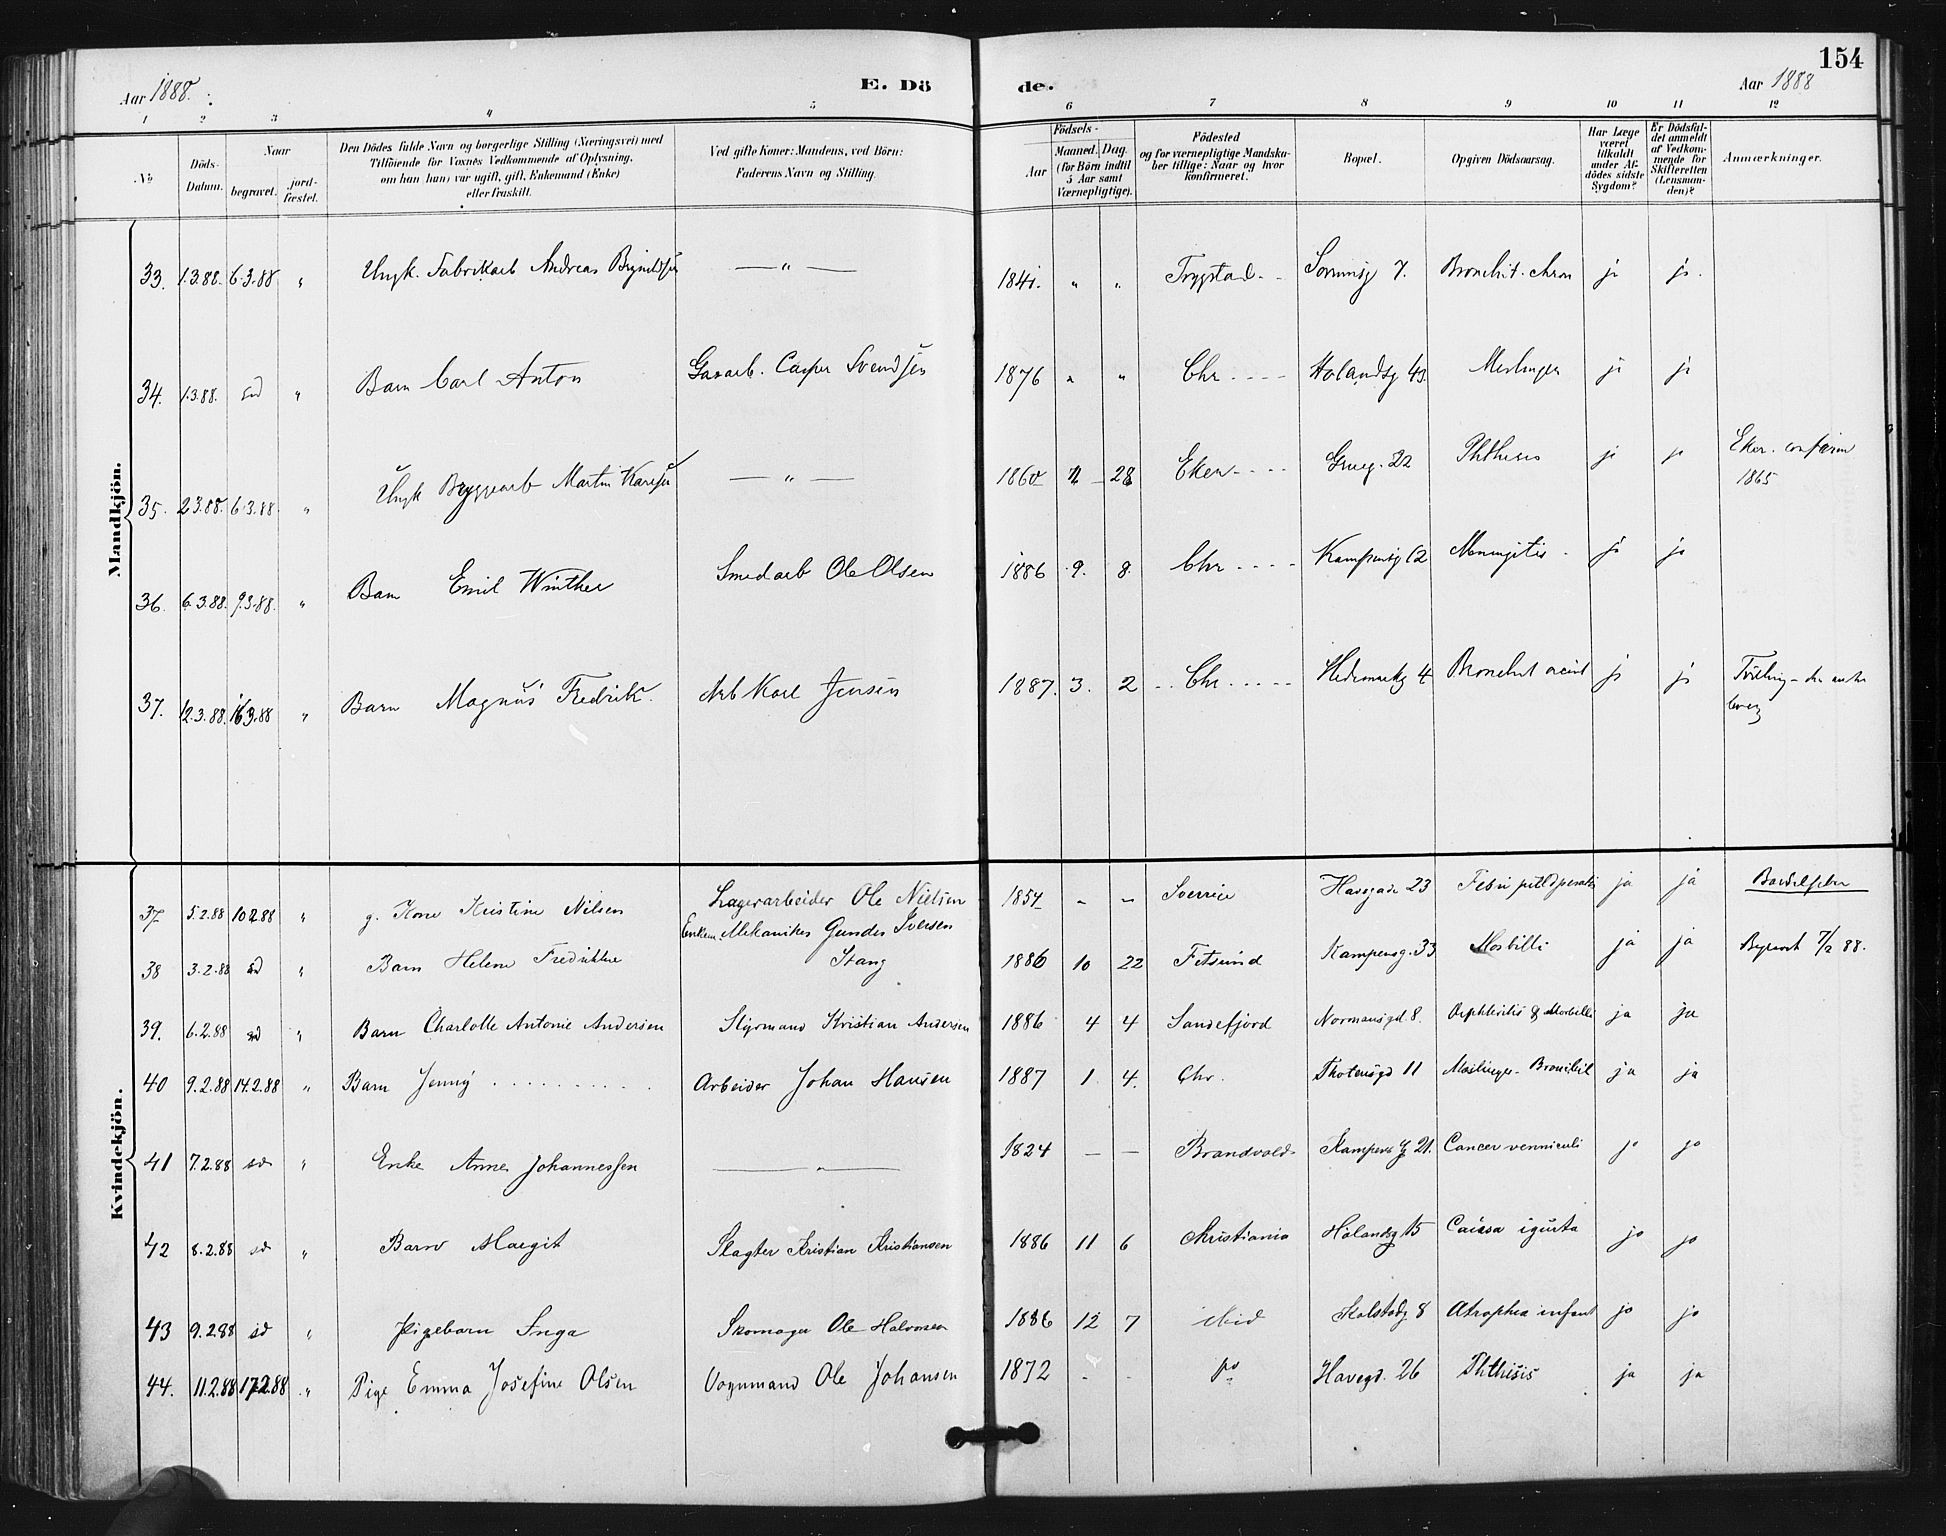 154
Aar 1888.
E. Dö
de.
Aar 1888
1 2 3 4 5 6 7 8 9 10 11 12
No
Döds-
Datum.
Naar
begravet.
jord-
fæstet.
Den Dödes fulde Navn og borgerlige Stilling (Næringsvei) med
Tilföiende for Voxnes Vedkommende af Oplysning,
om han (hun) var ugift, gift, Enkemand (Enke)
eller fraskilt.
Ved gifte Koner: Mandens, ved Börn:
Faderens Navn og Stilling.
Födsels-
Aar
Maaned. Dag.
(for Börn indtil
5 Aar samt
Værnepligtige).
Födested
og for værnepligtige Mandska-
ber tillige: Naar og hvor
konfirmeret.
Bopæl.
Opgiven Dödsaarsag.
Har Læge
været
tilkaldt
under Af-
dödes sidste
Sygdom?
Er Dödsfal-
det anmeldt
af Vedkom-
mende for
Skifteretten
(Lensman-
den)?
Anmærkninger.
Mandkjön.
33. 1.3.88. 6.3.88 " Ungk. Fabrikarb Andreas — " — " " Trygstad 7. Bronchit. chron ja ja.
34. 1.3.88. sd " Barn Carl Anton Gasarb. Casper Svendsen 1876 " " Chr Holandsg Meslinger ja ja
35. 2.3.88. 6.3.88 " Ungk Bryggearb Martin — " — 1860 28 Eker Grueg. 22 Phthisis ja ja Eker. confirm
1865
36. 6.3.88. 9.3.88. " Barn Emil Winther Smedarb Ole Olsen 1886 9. 8. Chr Kampensg 12 Meningitis ja ja
37. 12.3.88. 16.3.88 " Barn Magnus Fredrik. Arb Karl Jensen 1887. 3. 2 Chr Hedemarksg 4 Bronchit ja ja Tvilling
Kvindekjön.
37 5.2.88 10.2.88 " g. Kone Kristine Nilsen Lagerarbeider Ole Nielsen 1854 " " Sverrie Havegade 23 Febr. ja ja Barselfeber
38 3.2.88 sd " Barn Helene Fredrikke Enkem. Mekanikes Gunder Iversen
Stang 1886 10 22 Fetsund Kampensg. 33 Morbilli ja ja 7/2 88.
39. 6.2.88 sd " Barn Charlotte Antonie Andersen Styrmand Kristian Andersen 1886 4 4 Sandefjord Normansgd 8. Diphteritis & Morbilli ja ja
40 9.2.88 14.2.88 " Barn Jenny Arbeider Johan Hansen 1887 1 4. Chr. Thotensgd 11 Meslinger- Bronchit ja ja
41 7.2.88 sd " Enke Anne Johannessen — " — 1824 — — Brandvold Kampensg 21. Cancer ventriculi ja ja
42 8.2.88 sd " Barn Margit Slagter Kristian Kristiansen 1886 11 6 Christiania Holandsg 15 ja ja
43 9.2.88 sd " Pigebarn Inga Skomager Ole Halvorsen 1886 12 7 ibid 8 Atrophia infant ja ja
44. 11.2.88 17.2.88 " Pige Emma Josefine Olsen Vognmand Ole Johansen 1872 - - Havegd. 26 Phthisis ja ja